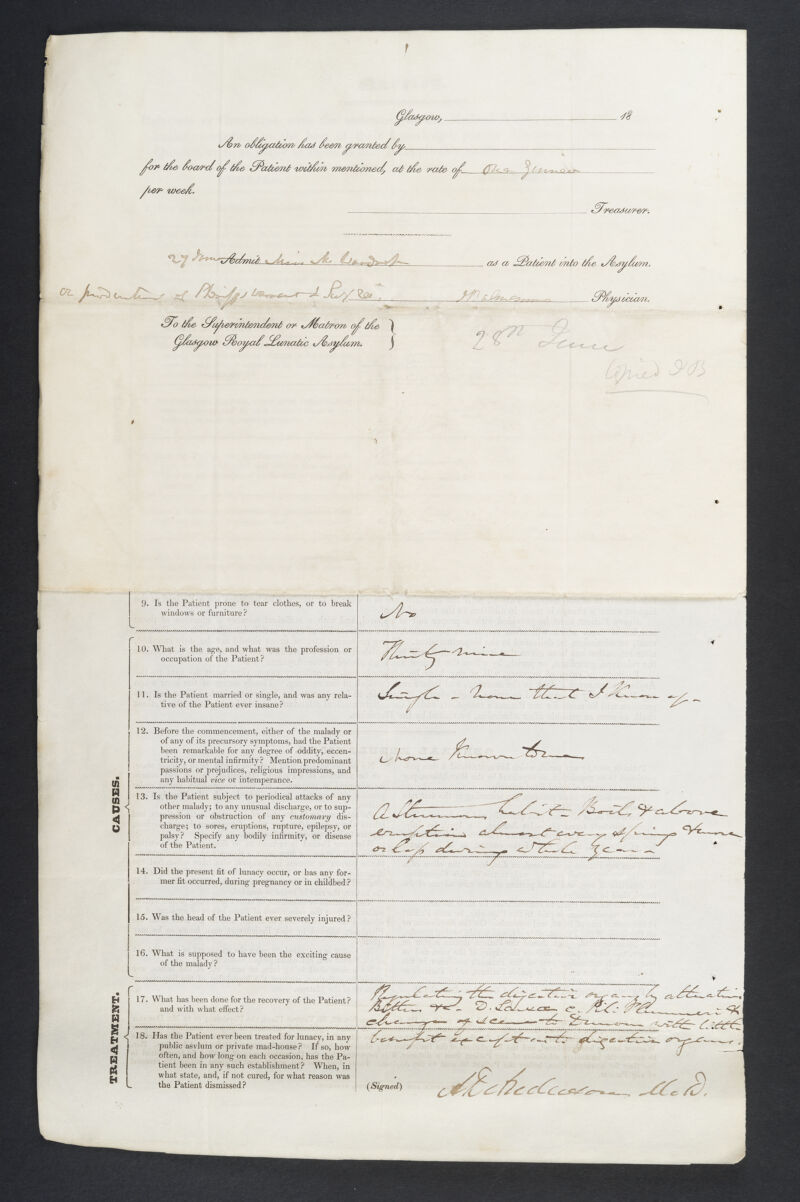 Glasgow, 18
An obligation has been granted by
for the board of the Patient within mentioned, at the rate of One Guinea
per week.
Treasurer.
27 June Admit Miss M as a Patient into the Asylum.
on production of & Physician.
To the Superintendent or Matron of the
Glasgow Royal Lunatic Asylum.
28th June
9. Is the Patient prone to tear clothes, or to break
windows or furniture?
No
10. What is the age, and what was the profession or
occupation of the Patient?
Thirty nine
11. Is the Patient married or single, and was any rela-
tive of the Patient ever insane?
Single - None that I know of -
CAUSES.
12. Before the commencement, either of the malady or
of any of its precursory symptoms, had the Patient
been remarkable for any degree of oddity, eccen-
tricity, or mental infirmity? Mention predominant
passions or prejudices, religious impressions, and
any habitual vice or intemperance.
None Known to me
13. Is the Patient subject to periodical attacks of any
other malady; to any unusual discharge, or to sup-
pression or obstruction of any customary dis-
charge; to sores, eruptions, rupture, epilepsy, or
palsy? Specify any bodily infirmity, or disease
of the Patient.
A Strumous habit - Boils & above
eruption almost every spring & more
or less during whole year -
14. Did the present fit of lunacy occur, or has any for-
mer fit occurred, during pregnancy or in childbed?
15. Was the head of the Patient ever severely injured?
16. What is supposed to have been the exciting cause
of the malady?
TREATMENT.
17. What has been done for the recovery of the Patient?
and with what effect?
Regulating the digestive organs by
Bitters &c - Pil: Plummeri &
change of scene to with little
benefit except on the digestive organs.
18. Has the Patient ever been treated for lunacy, in any
public asylum or private mad-house? If so, how
often, and how long on each occasion, has the Pa-
tient been in any such establishment? When, in
what state, and, if not cured, for what reason was
the Patient dismissed?
(Signed) M.D.